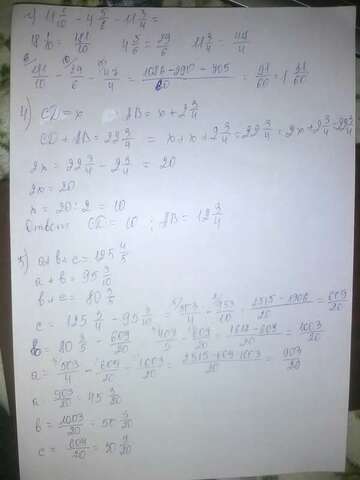 18 1/10 - 4 5/6 - 11 3/4 =
18 1/10 = 181/10   4 5/6 = 29/6   11 3/4 = 47/4
181/10 - 29/6 - 47/4 = (1086-290-705)/60 = 91/60 = 1 31/60
4) CD = x   AB = x + 2 3/4
CD + AB = 22 3/4 = x + x + 2 3/4 = 22 3/4 = 2x + 2 3/4 = 22 3/4
2x = 22 3/4 - 2 3/4 = 20
2x = 20
x = 20 : 2 = 10
Ответ: CD = 10 ; AB = 12 3/4
5) a + b + c = 125
a + b = 95 3/10
b + c = 80 3/5
c = 125 3/4 - 95 3/10 = 503/4 - 953/10 = (2515-1906)/20 = 609/20
b = 80 3/5 - 609/20 = 403/5 - 609/20 = (1612-609)/20 = 1003/20
a = 503/4 - 609/20 - 1003/20 = (2515-609-1003)/20 = 903/20
a = 903/20 = 45 3/20
b = 1003/20 = 50 3/20
c = 609/20 = 30 9/20